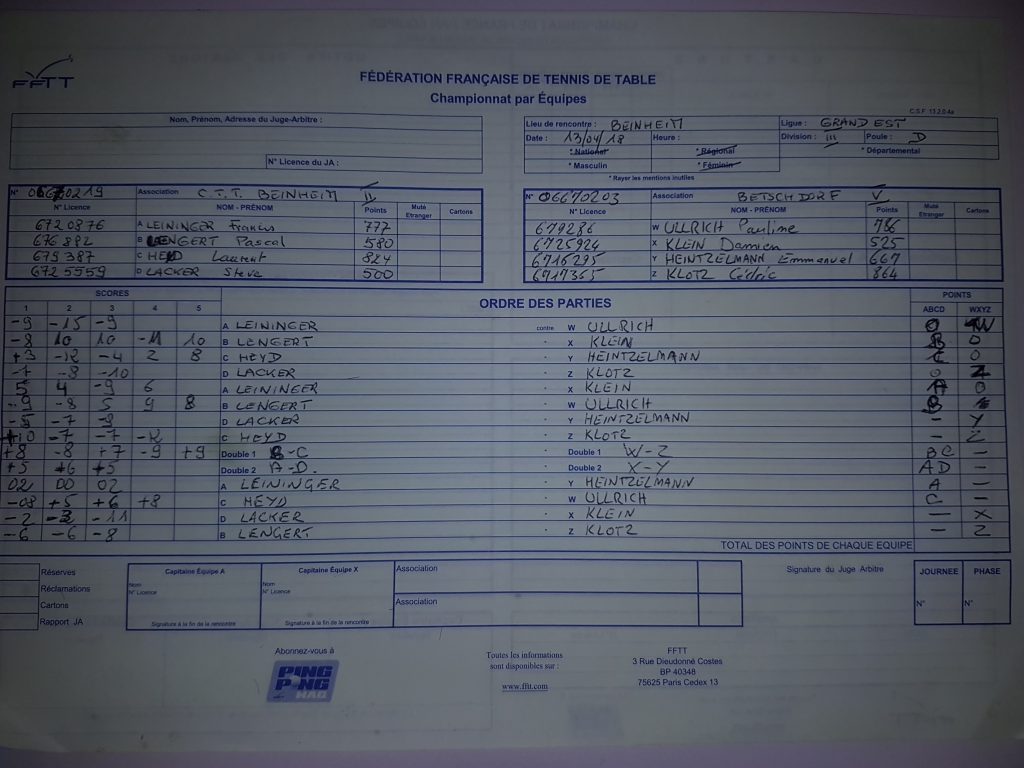 FFTT
FÉDÉRATION FRANÇAISE DE TENNIS DE TABLE
Championnat par Équipes
C.S.F. 13.2.0.4a
Nom, Prénom, Adresse du Juge-Arbitre :
N° Licence du JA :
Lieu de rencontre : BEINHEIM Ligue : GRAND EST
Date : 13/04/18 Heure : Division : III Poule : D
* National * Régional * Départemental
* Masculin * Féminin
* Rayer les mentions inutiles
N° 06670219 Association C.T.T. BEINHEIM II
N° Licence NOM - PRÉNOM Points Muté Etranger Cartons
6720876 A LEININGER Francis 777
676882 B LENGERT Pascal 580
675387 C HEYD Laurent 824
6725559 D LACKER Steve 500
N° 06670203 Association BETSCHDORF V
N° Licence NOM - PRÉNOM Points Muté Etranger Cartons
679286 W ULLRICH Pauline 786
6725924 X KLEIN Damien 525
6716295 Y HEINTZELMANN Emmanuel 667
6717365 Z KLOTZ Cédric 864
SCORES ORDRE DES PARTIES POINTS
1 2 3 4 5 ABCD WXYZ
-9 -15 -9 A LEININGER contre W ULLRICH 0 W
-8 10 10 -11 10 B LENGERT X KLEIN B 0
+3 -12 -4 2 8 C HEYD Y HEINTZELMANN C 0
-7 -8 -10 D LACKER Z KLOTZ 0 Z
5 4 -9 6 A LEININGER X KLEIN A 0
-9 -8 5 9 8 B LENGERT W ULLRICH B
-5 -7 -9 D LACKER Y HEINTZELMANN - Y
+10 -7 -7 -12 C HEYD Z KLOTZ - Z
+8 -8 +7 -9 +9 Double 1 B-C Double 1 W-Z BC -
+5 +6 +5 Double 2 A-D. Double 2 X-Y AD -
02 00 02 A LEININGER Y HEINTZELMANN A -
-08 +5 +6 +8 C HEYD W ULLRICH C -
-2 -3 -11 D LACKER X KLEIN - X
-6 -6 -8 B LENGERT Z KLOTZ - Z
TOTAL DES POINTS DE CHAQUE EQUIPE
Réserves
Réclamations
Cartons
Rapport JA
Capitaine Équipe A
Nom
N° Licence
Signature à la fin de la rencontre
Capitaine Équipe X
Nom
N° Licence
Signature à la fin de la rencontre
Association
Association
Signature du Juge Arbitre
JOURNEE PHASE
N° N°
Abonnez-vous à
PING PONG MAG
Toutes les informations
sont disponibles sur :
www.fftt.com
FFTT
3 Rue Dieudonné Costes
BP 40348
75625 Paris Cedex 13